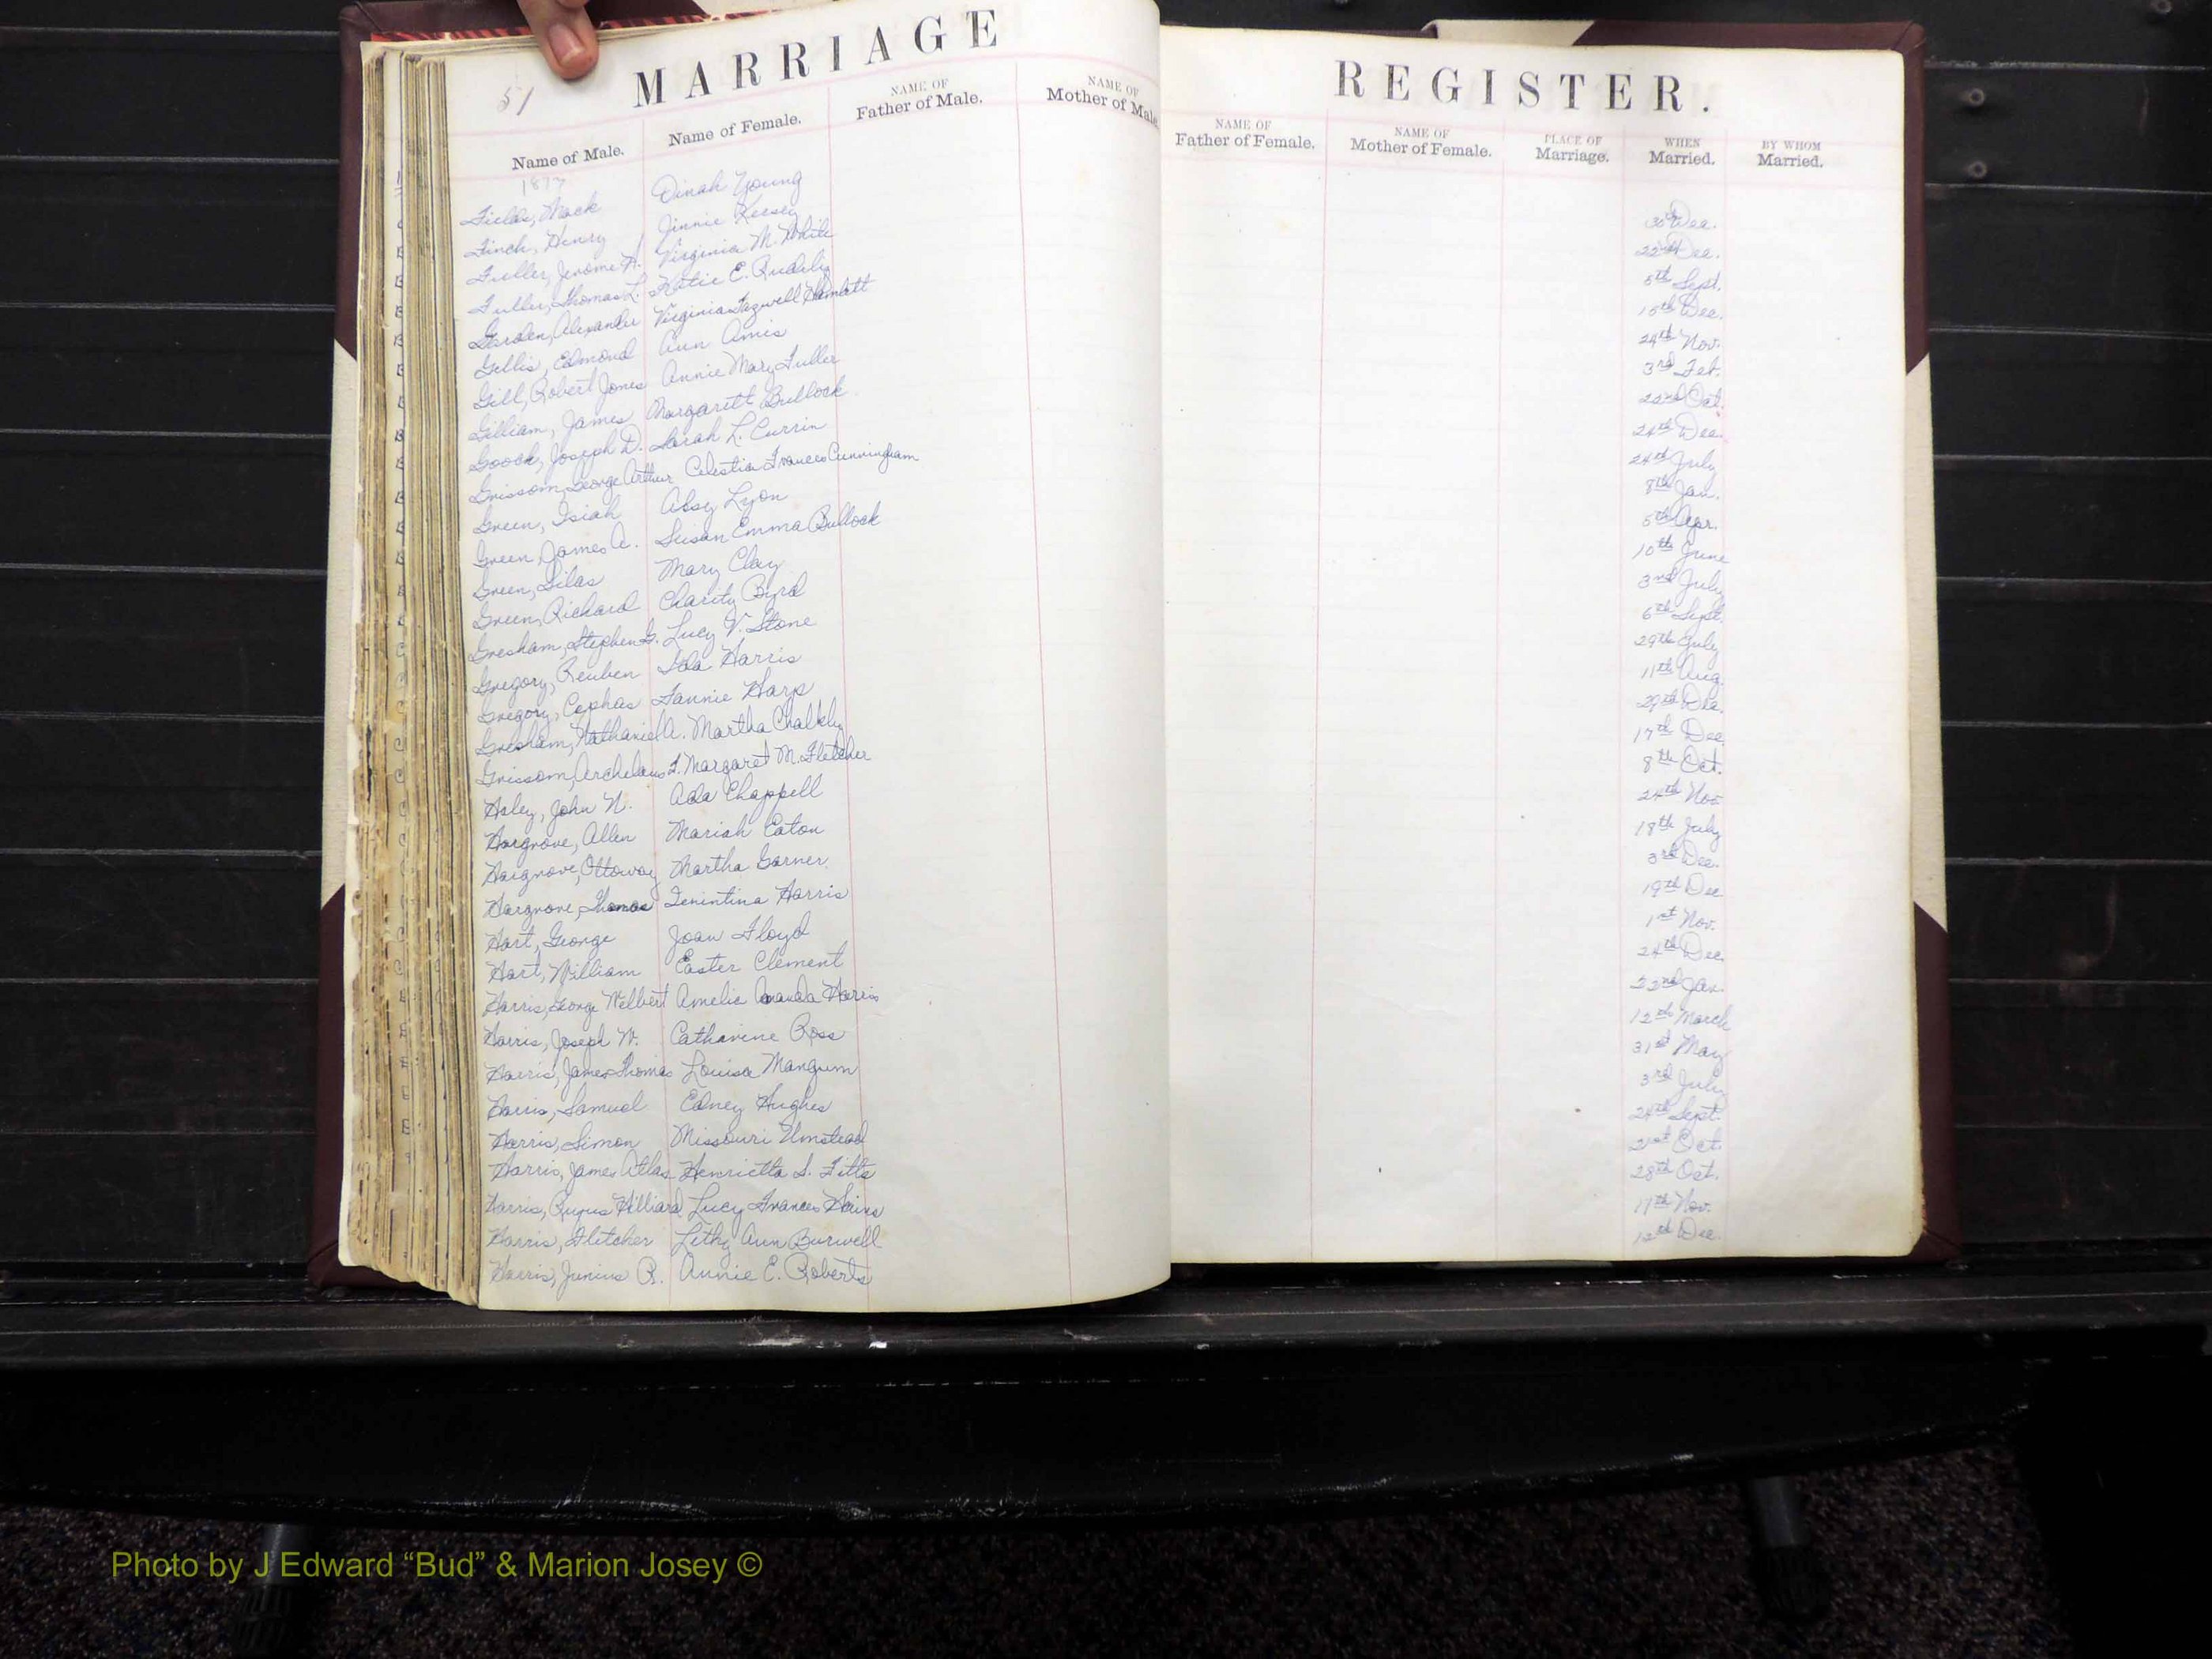 MARRIAGE REGISTER.
51
Name of Male. Name of Female. NAME OF Father of Male. NAME OF Mother of Male. NAME OF Father of Female. NAME OF Mother of Female. PLACE OF Marriage. WHEN Married. BY WHOM Married.
1877
Fields, Mack Dinah Young 30th Dec.
Finch, Henry Jinnie Kersey 22nd Dec.
Fuller, Jerome A. Virginia M. White 5th Sept.
Fuller, Thomas L. Katie E. 15th Dec.
Garden, Alexander Virginia Tazwell Hamlett 24th Nov.
Gillis, Edmond Ann Amis 3rd Feb.
Gill, Robert Jones Annie Mary Fuller 22nd Oct.
Gilliam, James Margarett Bullock 24th Dec.
Gooch, Joseph D. Sarah L. Currin 24th July
Grissom, George Arthur Celestia Frances Cunningham 8th Jan.
Green, Isiah Absy Lyon 5th Apr.
Green, James A. Susan Emma Bullock 10th June
Green, Silas Mary Clay 3rd July
Green, Richard Charity Byrd 6th Sept.
Gresham, Stephen G. Lucy V. Stone 29th July
Gregory, Reuben Ida Harris 11th Aug.
Gregory, Cephas Fannie Harp 29th
Gresham, Nathaniel A. Martha Chalkley 17th Dec.
Grissom, Archelaus F. Margaret M. Fletcher 8th Oct.
Haley, John N. Ada Chappell 24th Nov.
Hargrove, Allen Mariah Eaton 18th July
Hargrove, Ottoway Martha Garner 3rd Dec.
Hargrove, Thomas Harris 19th Dec
Hart, George Joan Floyd 1st Nov.
Hart, William Easter Clement 24th Dec.
Harris, George Welbert Amelia Amanda Harris 22nd Jan.
Harris, Joseph W. Catharine Ross 12th March
Harris, James Thomas Louisa Mangum 31st May
Harris, Samuel Edney Hughes 3rd July
Harris, Simon Missouri Umstead 24th Sept.
Harris, James Atlas Henrietta S. Fitts 21st Oct.
Harris, Rufus Hilliard Lucy Frances 28th Oct.
Harris, Fletcher Lethy Ann Burwell 17th Nov.
Harris, Junius R. Annie E. Roberts 12th Dec.
Photo by J Edward “Bud” & Marion Josey ©